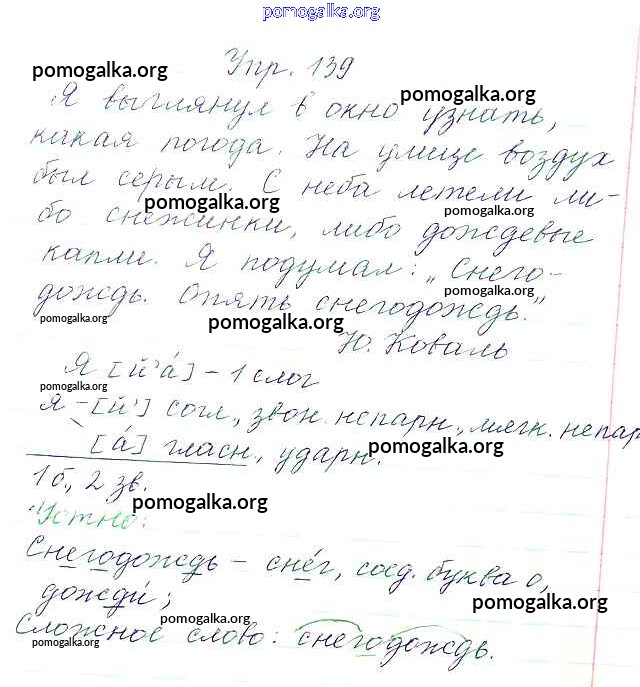 pomogalka.org
Упр. 139
pomogalka.org
Я выглянул в окно узнать,
pomogalka.org
какая погода. На улице воздух
был серым. С неба летели ли-
pomogalka.org
pomogalka.org
бо снежинки, либо дождевые
капли. Я подумал: „Снего-
pomogalka.org
дождь. Опять снегодождь."
pomogalka.org
pomogalka.org
Ю. Коваль
Я [й'а́] – 1 слог
pomogalka.org
я – [й'] согл., звон. непарн., мягк. непар
[а́] гласн., ударн.
pomogalka.org
1 б., 2 зв.
pomogalka.org
Устно:
Снегодождь – сне́г, соед. буква о,
дожди́;
pomogalka.org
pomogalka.org
Сложное слово: снегодождь.
pomogalka.org